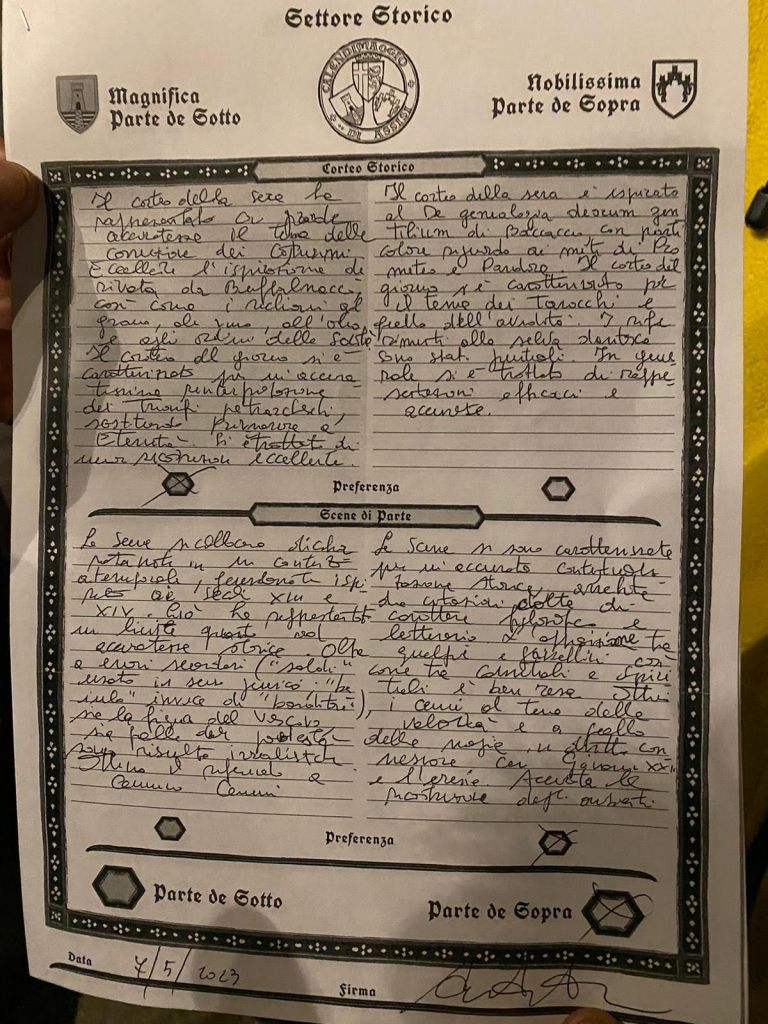 Settore Storico
CALENDIMAGGIO
DI ASSISI
Magnifica
Parte de Sotto
Nobilissima
Parte de Sopra
Corteo Storico
Il corteo della sera ha
rappresentato con grande
accuratezza il tema delle
corruzione dei costumi.
Eccellente l'ispirazione de
rivata da Buffalmacco
così come i richiami al
grano, al vino, all'olio
e agli ordini della
Il corteo del giorno si è
caratterizzato per un'accura
tissima reinterpolazione
dei Trionfi petrarcheschi,
sostituendo Primavera a
Eternità. Si è trattat di
una eccellente.
Il corteo della sera è ispirato
al De genealogia deorum gen
tilium di Boccaccio con parti
colare riguardo ai miti di Pro
meteo e Pandora. Il corteo del
giorno si è caratterizzato per
il tema dei Tarocchi e
quello dell'avidità. I rife
rimenti alla selva dantesca
sono stati puntuali. In gene
rale si è trattato di rappre
sentazioni efficaci e
accurate.
Preferenza
Scene di Parte
Le scene si collocano dichia
ratamente in un contesto
atemporale, facendo
ai secoli XIII e
XIV. Ciò ha rappresentato
un limite quanto ad
accuratezza storica. Oltre
a errori secondari ("soldi"
usato in senso
invece di
sia la figura del vescovo
sia quella del podestà
sono risultate irrealistiche
Ottimo il riferimento a
Cennino Cennini
Le scene si sono caratterizzate
per un'accurata contestualiz
zazione storica, arricchita
da citazioni dotte di
carattere filosofico e
letterario. L'opposizione tra
guelfi e ghibellini così
come tra carnali e spiri
tuali è ben resa. Ottimi
i cenni al tema della
e a quello
della magia, in diretta con
nessione con Giovanni XXII
e l'eresia. Accurata la
Preferenza
Parte de Sotto
Parte de Sopra
Data 7/5/2023
Firma